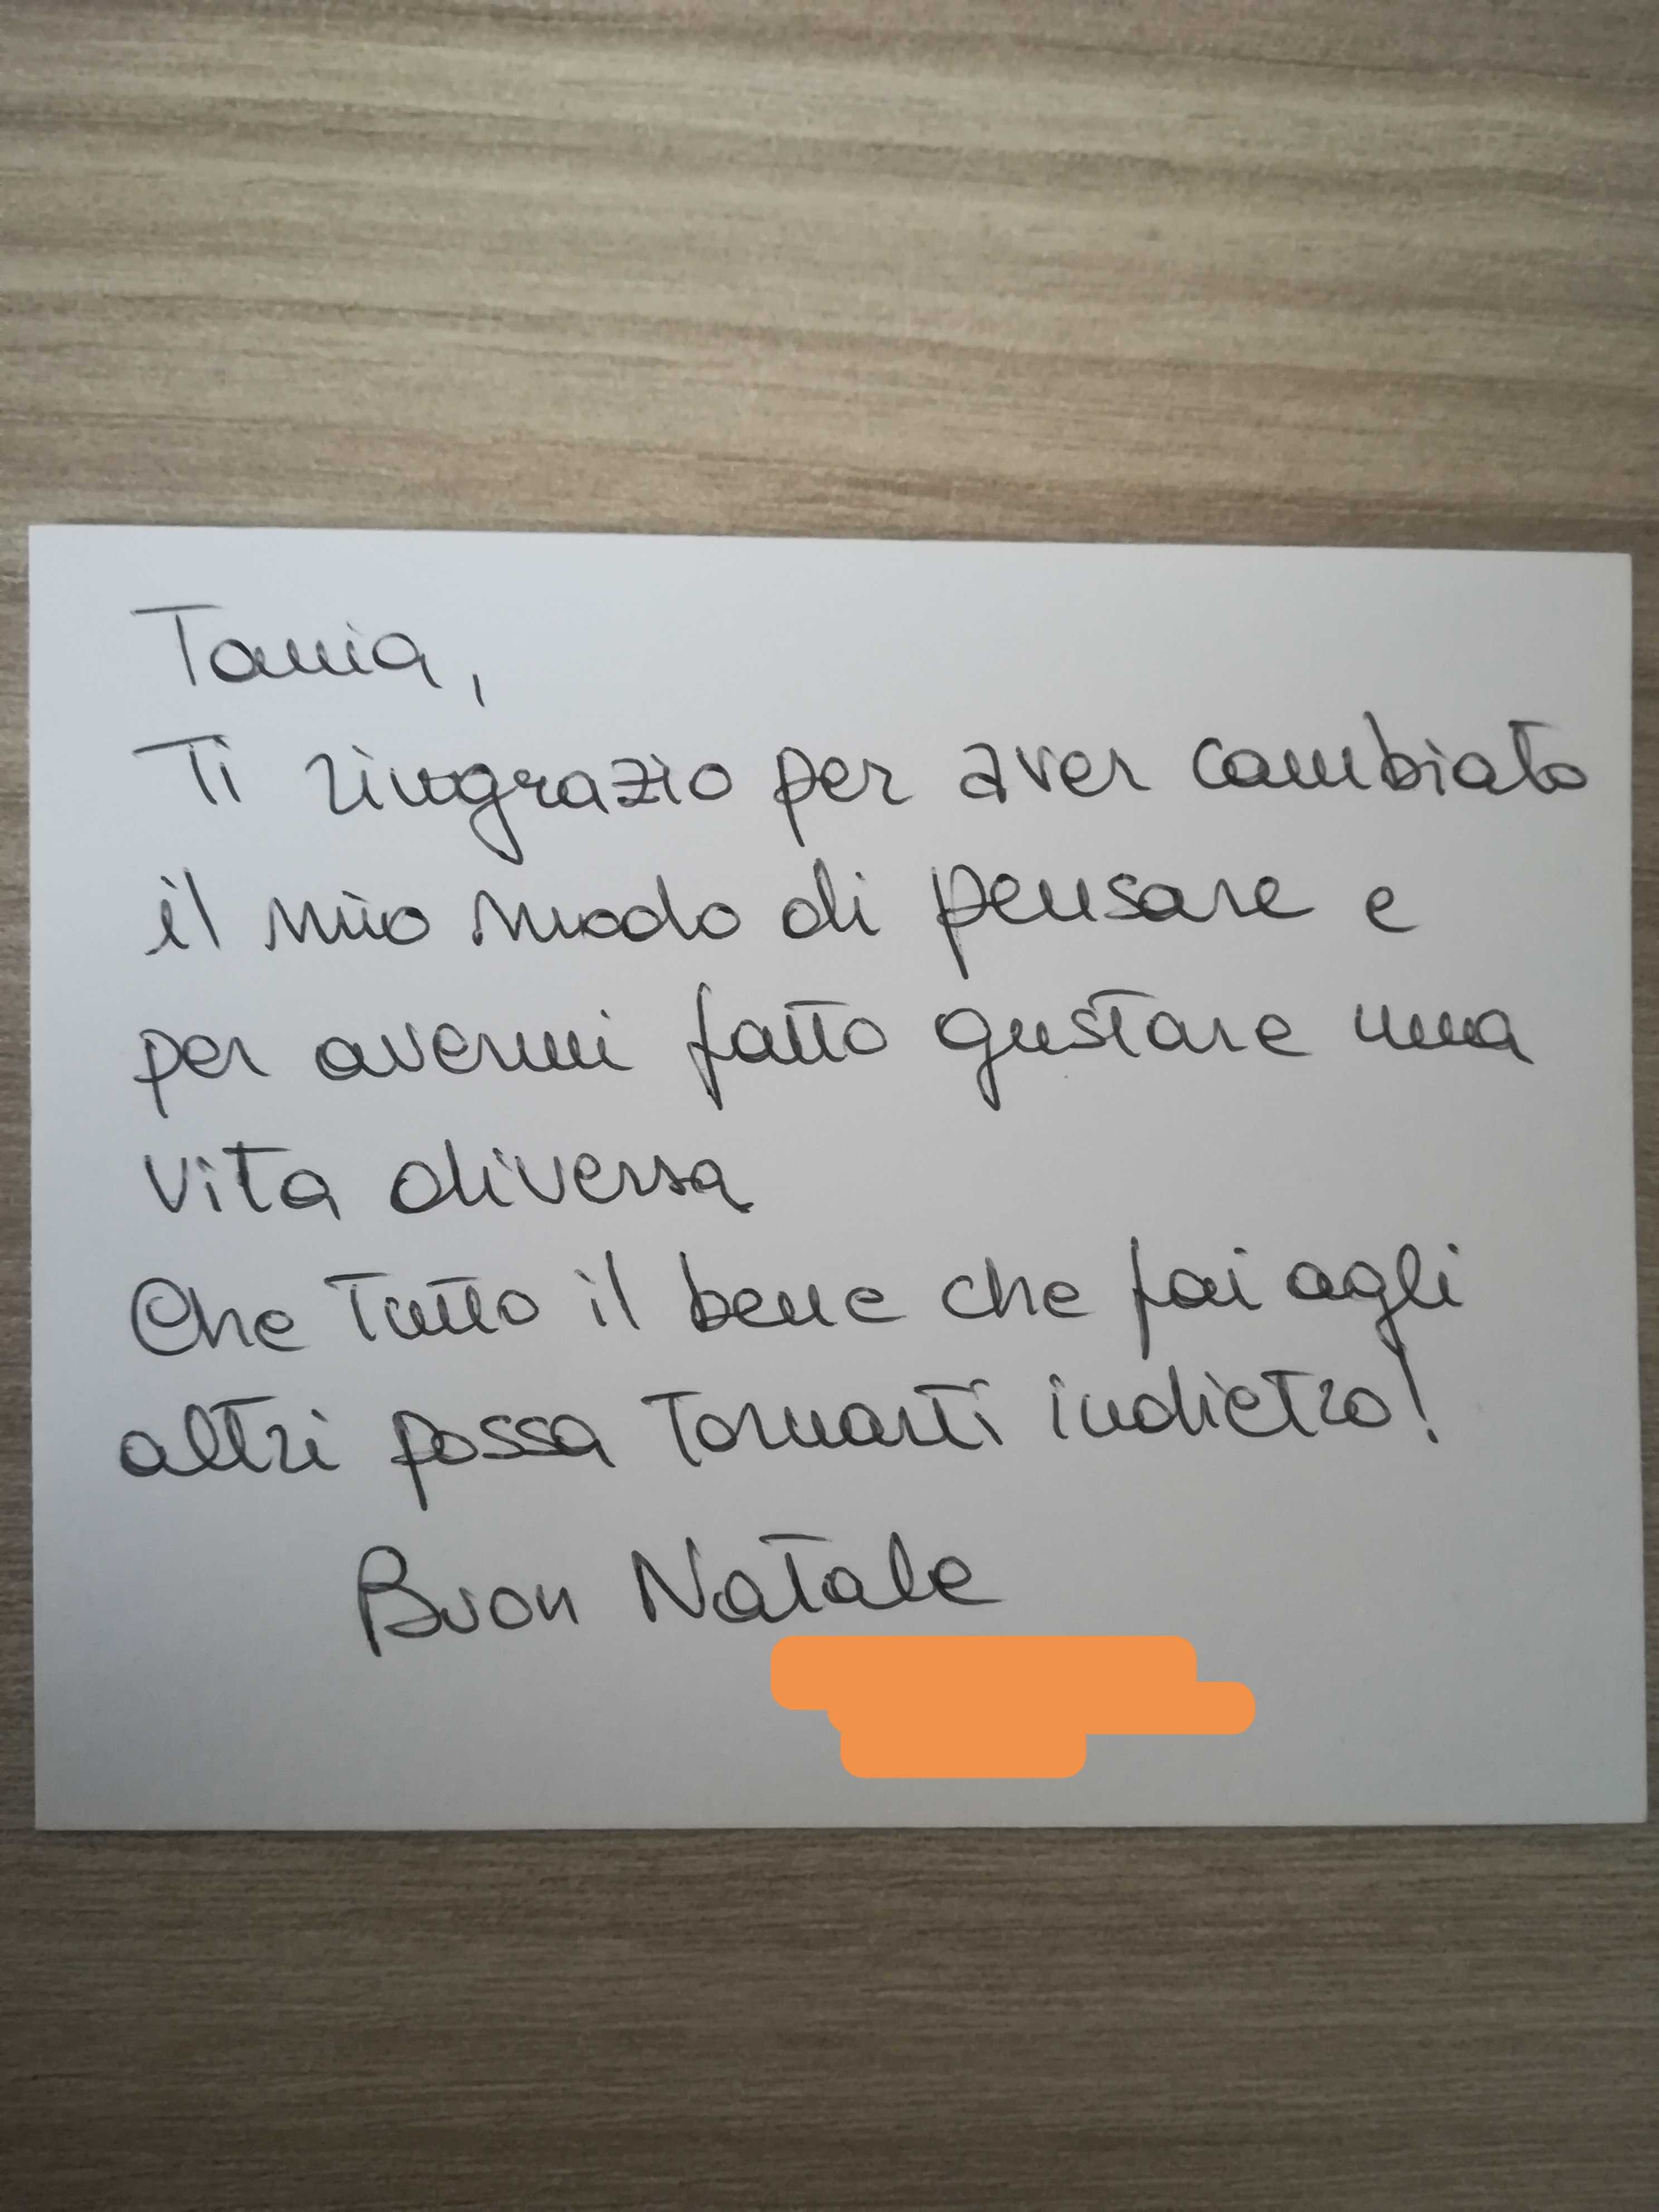 Tania,
Ti ringrazio per aver cambiato
il mio modo di pensare e
per avermi fatto gustare una
vita diversa
Che tutto il bene che fai agli
altri possa tornarti indietro!
Buon Natale